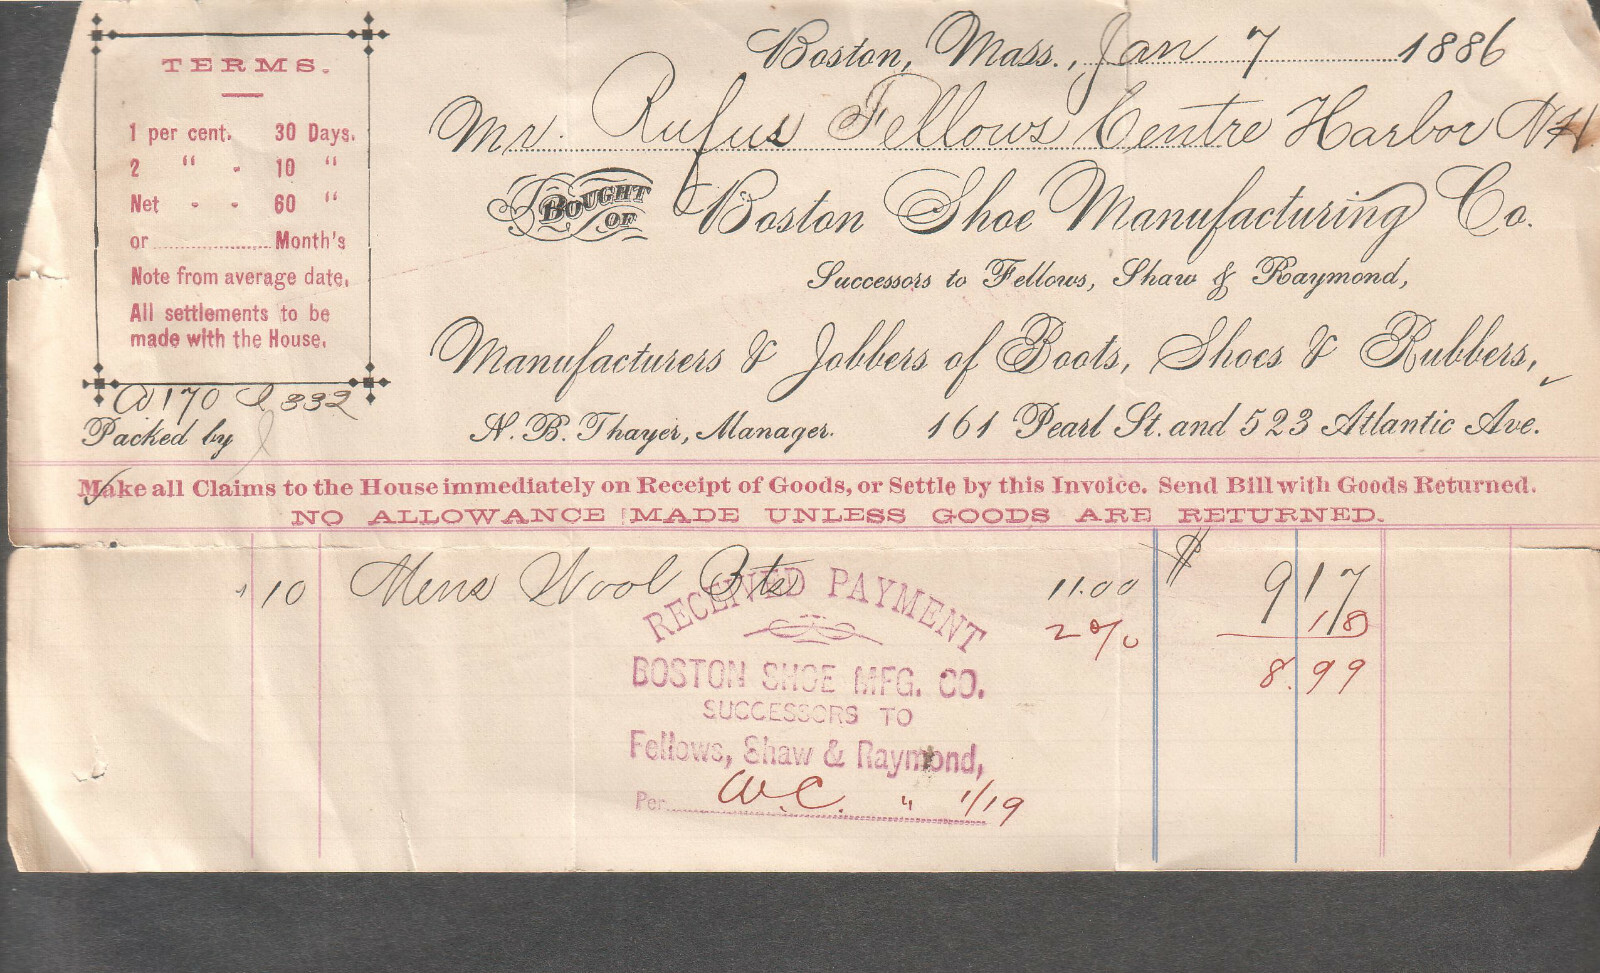 TERMS.
1 per cent. 30 Days.
2 " - 10 "
Net - - 60 "
or ............ Month's
Note from average date.
All settlements to be
made with the House.
Boston, Mass., Jan 7 1886
Mr. Rufus Fellows Centre Harbor NH
BOUGHT OF Boston Shoe Manufacturing Co.
Successors to Fellows, Shaw & Raymond,
Manufacturers & Jobbers of Boots, Shoes & Rubbers,
N. B. Thayer, Manager. 161 Pearl St. and 523 Atlantic Ave.
170 332
Packed by
Make all Claims to the House immediately on Receipt of Goods, or Settle by this Invoice. Send Bill with Goods Returned.
NO ALLOWANCE MADE UNLESS GOODS ARE RETURNED.
10 Mens Wool Bts 11.00 $ 9 17
2% 18
8.99
RECEIVED PAYMENT
BOSTON SHOE MFG. CO.
SUCCESSORS TO
Fellows, Shaw & Raymond,
Per W.C. " 1/19